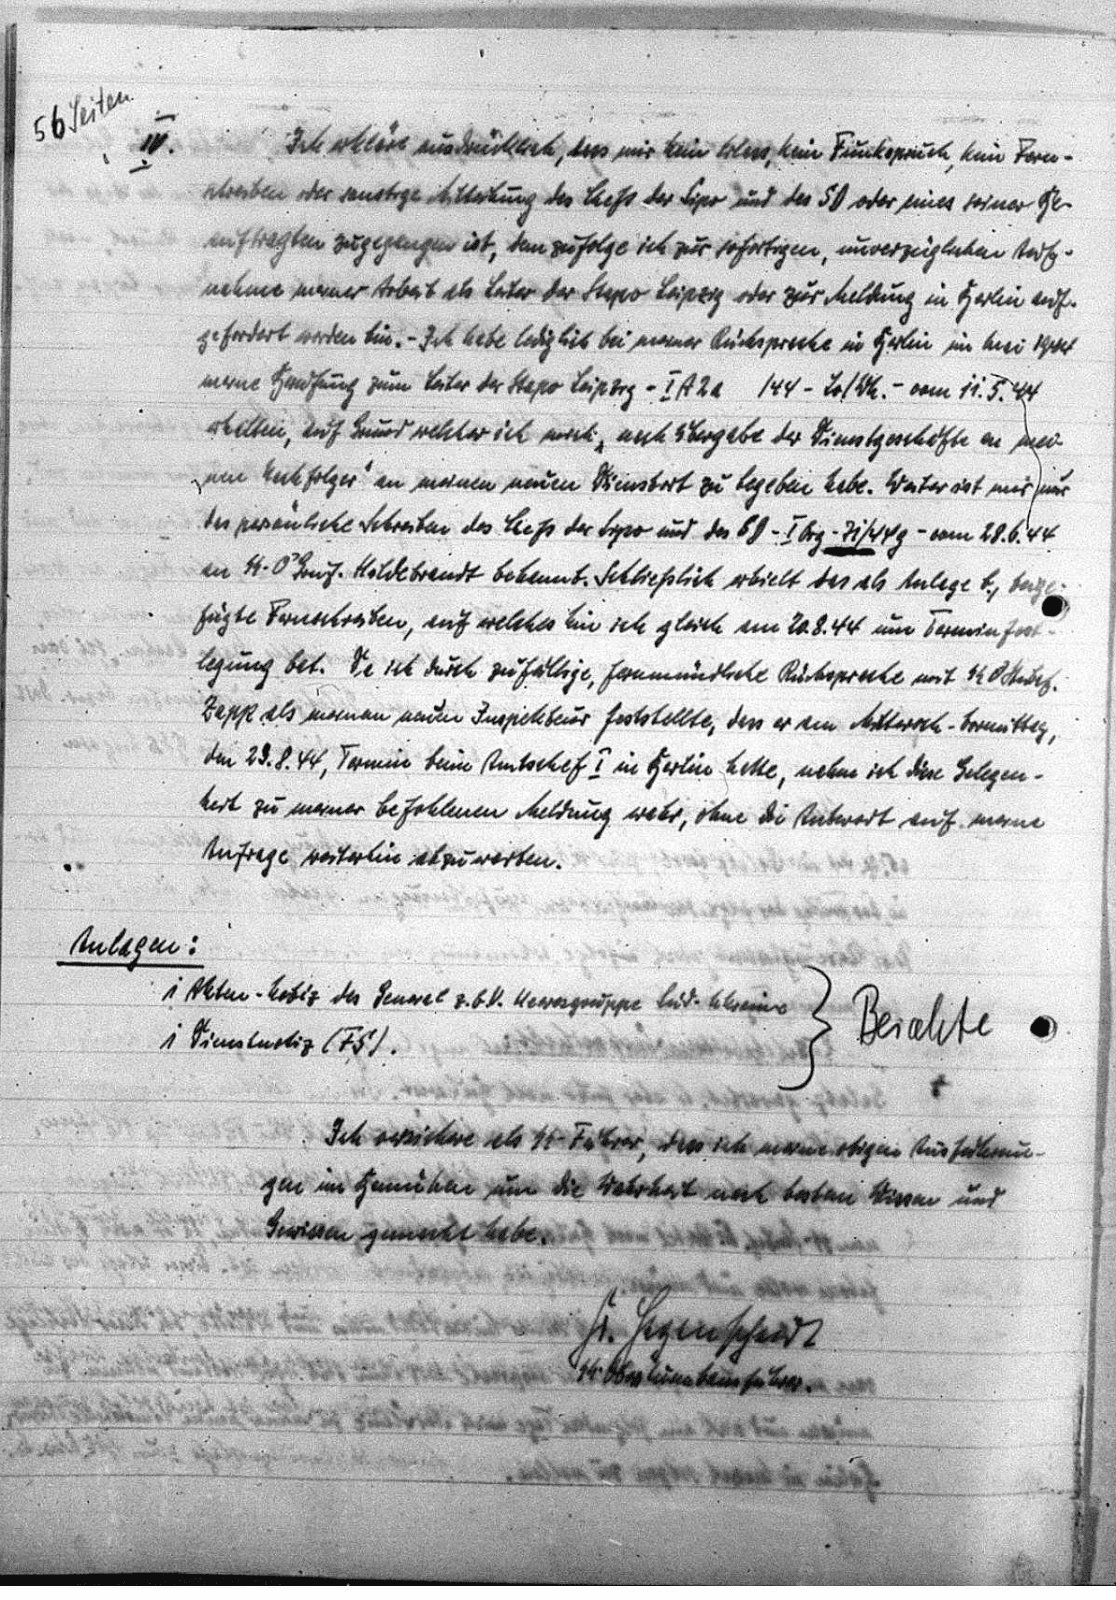 56 Seiten
IV. Ich erkläre ausdrücklich, dass mir kein Erlass, kein Funkspruch, kein Fern-
schreiben oder sonstige Mitteilung des Chefs der Sipo und des SD oder eines seiner Be-
auftragten zugegangen ist, demzufolge ich zur sofortigen, unverzüglichen Auf-
nahme meiner Arbeit als Leiter der Stapo Leipzig oder zur Meldung in Berlin auf-
gefordert worden bin. - Ich habe lediglich bei meiner Rücksprache in Berlin im Mai 1944
meine Berufung zum Leiter der Stapo Leipzig - I A 2 a 144 - vom 11.5.44
erhalten, auf Grund welcher ich mich „nach Übergabe der Dienstgeschäfte an mei-
nen Nachfolger" an meinen neuen Dienstort zu begeben habe. Weiter ist mir nur
das persönliche Schreiben des Chefs der Sipo und des SD - I Org - 31/44g - vom 28.6.44
an SS-O'Gruf. Hildebrandt bekannt. Schliesslich erhielt das als Anlage beige-
fügte Fernschreiben, auf welches hin ich gleich am 20.8.44 um Terminfest-
legung bat. Da ich durch zufällige, fernmündliche Rücksprache mit SS OStubaf.
Zapp als meinen neuen Inspekteur feststellte, dass er am Mittwoch-Vormittag,
den 23.8.44, Termin beim Amtschef I in Berlin hatte, nahm ich diese Gelegen-
heit zu meiner befohlenen Meldung wahr, ohne die Antwort auf meine
Anfrage weiterhin abzuwarten.
Anlagen:
1 Akten-Notiz des General z.b.V. Heeresgruppe Süd-Ukraine
1 Dienstnotiz (FS).
Berichte
Ich versichere als SS-Führer, dass ich meine obigen Ausführun-
gen im Bemühen um die Wahrheit nach bestem Wissen und
Gewissen gemacht habe.
Dr. Hegenscheidt
SS-Obersturmbannführer.